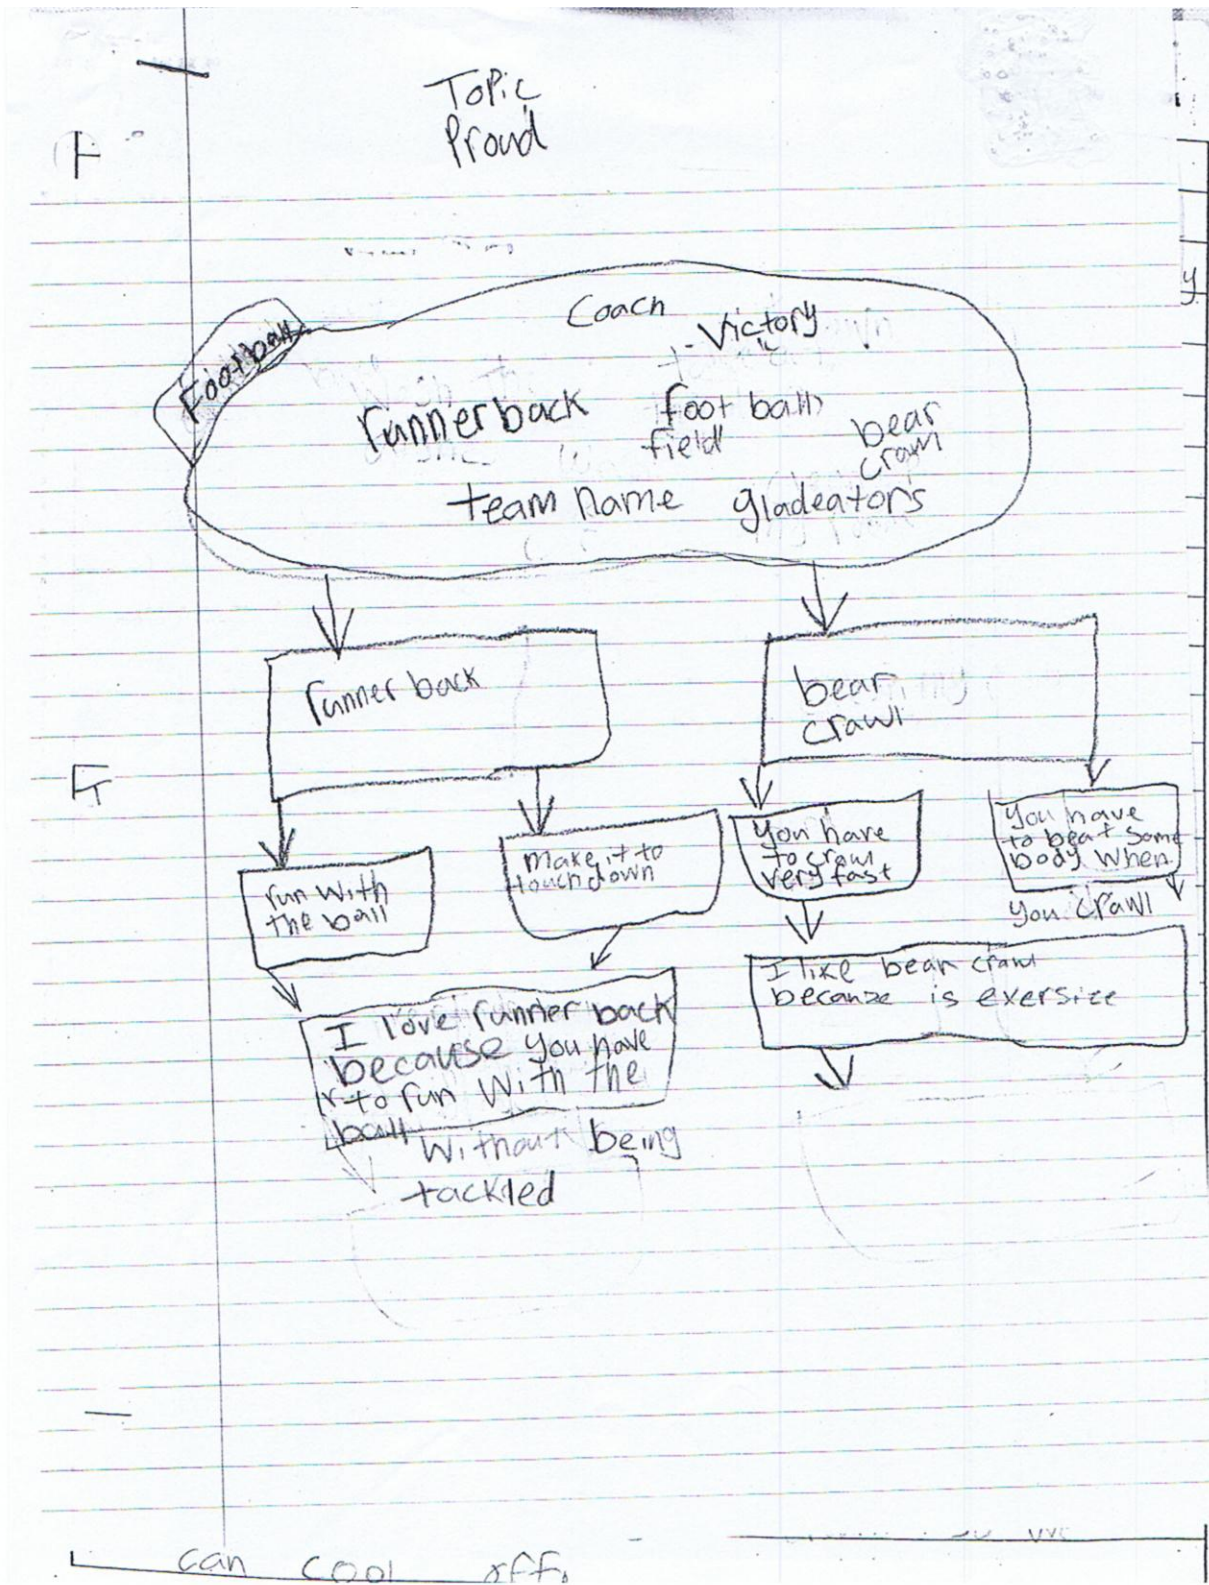 Topic
Proud
Football
Coach
Victory
runnerback
foot ball
field
bear
crawl
team name gladeators
runner back
bear
crawl
run with
the ball
make it to
touchdown
You have
to crawl
very fast
You have
to beat some
body when
you crawl
I love runner back
because you have
to run with the
ball without being
tackled
I like bear crawl
becauze is exersize
can cool off.